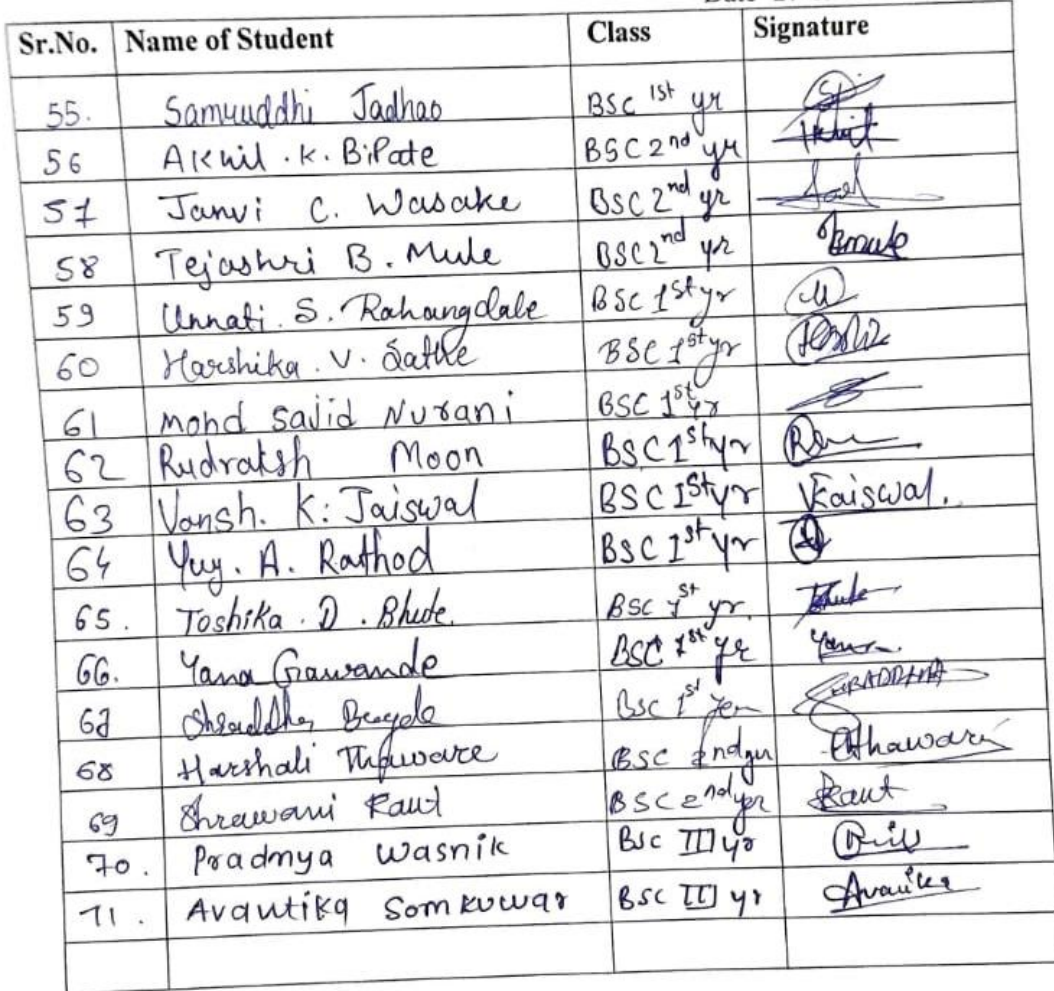 Sr.No. Name of Student Class Signature
55. Samruddhi Jadhao BSC 1st yr
56 Akhil . K. BiPate BSC 2nd yr
57 Janvi C. Wasake BSC 2nd yr
58 Tejashri B. Mule BSC 2nd yr Tmule
59 Unnati. S. Rahangdale BSC 1st yr
60 Harshika . V. Sathe BSC 1st yr
61 Mohd Sajid Nurani BSC 1st yr
62 Rudraksh Moon BSC 1st yr
63 Vansh. K. Jaiswal BSC 1st yr
64 Yug. A. Rathod BSC 1st yr
65. Toshika . D . Bhute. BSC 1st yr.
66. Yana Gawande BSC 1st yr
67 Shraddha BSC 1st SHRADDHA
68 Harshali Thaware BSC 2nd yr
69 Shrawani Raut BSC 2nd yr Raut
70. Pradnya Wasnik BSC III yr
71. Avantika Somkuwar BSC III yr Avantika